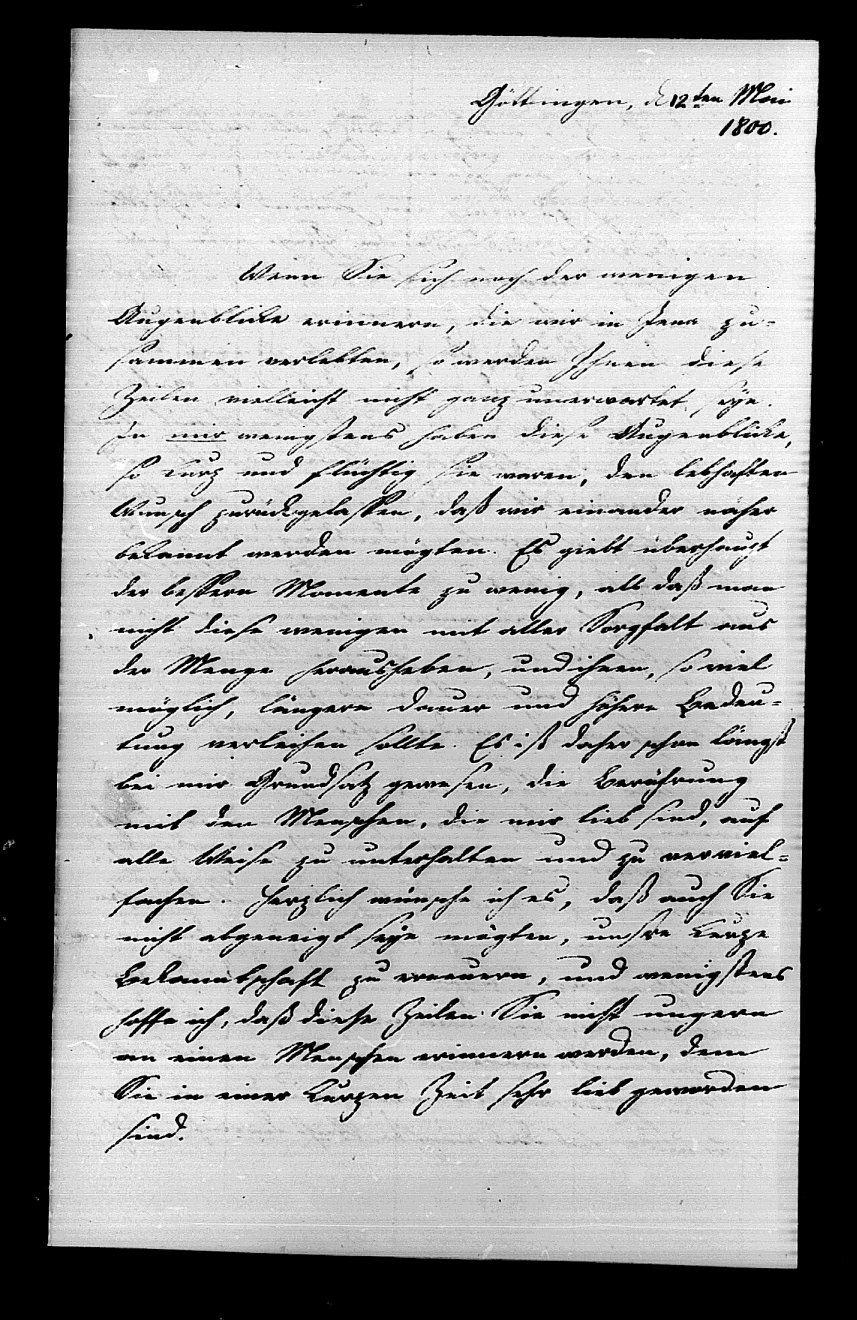 Göttingen, d 12ten Mai
1800.
Wenn Sie sich noch der wenigen
Augenblicke erinnern, die wir in Jena zu-
sammen verlebten, so werden Ihnen diese
Zeilen vielleicht nicht ganz unerwartet seyn.
In mir wenigstens haben diese Augenblicke,
so kurz und flüchtig sie waren, den lebhaften
Wunsch zurückgelassen, daß wir einander näher
bekannt werden mögten. Es giebt überhaupt
der bessern Momente zu wenig, als daß man
nicht diese wenigen mit aller Sorgfalt aus
der Menge herausheben, und ihnen, so viel
möglich, längere Dauer und höhere Bedeu-
tung verleihen sollte. Es ist daher schon längst
bei mir Grundsatz gewesen, die Berührung
mit den Menschen, die mir lieb sind, auf
alle Weise zu unterhalten und zu verviel-
fachen. Herzlich wünsche ich es, daß auch Sie
nicht abgeneigt seyn mögten, unsre kurze
Bekanntschaft zu erneuern, und wenigstens
hoffe ich, daß diese Zeilen Sie nicht ungern
an einen Menschen erinnern werden, dem
Sie in einer kurzen Zeit sehr lieb geworden
sind.